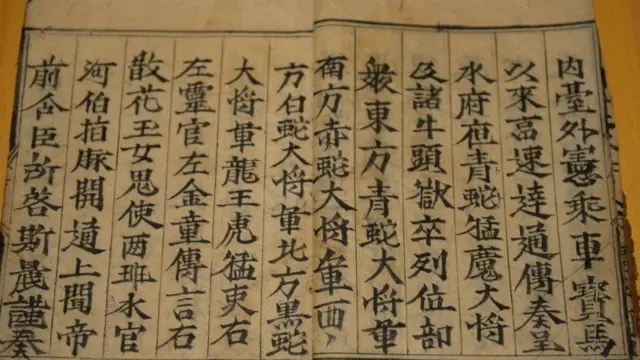 內臺外憲乘車寶馬
以來高速達通傳奏呈
水府在青蛇猛魔大將
及諸牛頭獄卒列位部
般東方青蛇大將軍
南方赤蛇大將軍西
方白蛇大將軍北方黑蛇
大將軍龍王虎猛吏右
左靈官左金童傳言右
散花玉女鬼使两班水官
河伯拍脉開通上聞帝
前今臣所啓斯晨謹奏